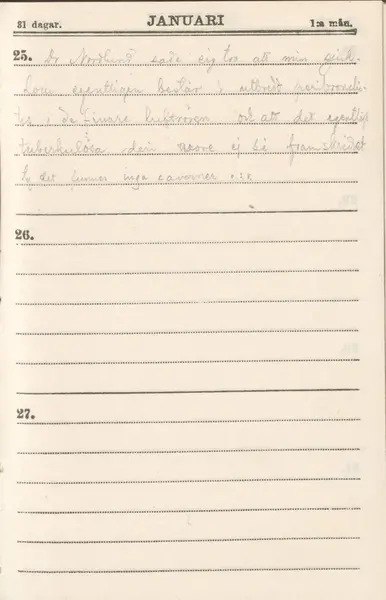 31 dagar. JANUARI 1:a mån.
25. Dr Nordlund sade sig tro att min sjuk-
dom egentligen består i utbredt peribronchi-
tis i de finare luftrören och att det egentliga
tuberkulösa dem vore ej så framskridet
ty det finnes inga cavernor
26.
27.